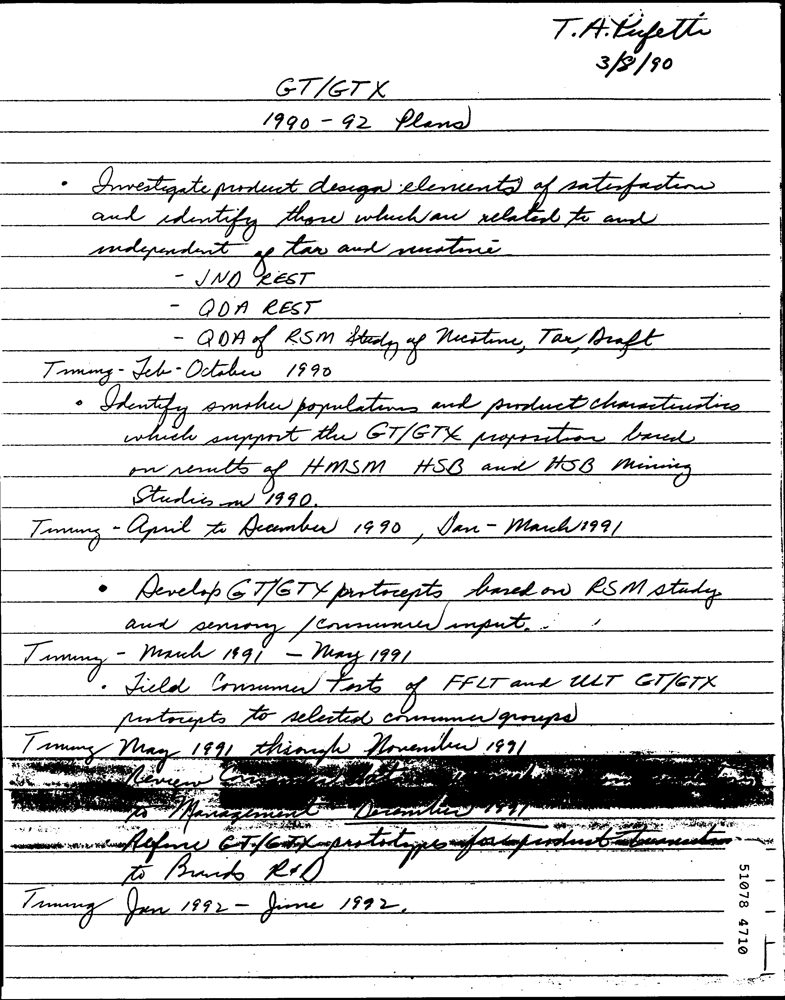 T.A. Perfetti
3/8/90
GT/GTX
1990 - 92 Plans
• Investigate product design elements of satisfaction
and identify those which are related to and
independent of tar and nicotine
- JND REST
- QDA REST
- QDA of RSM Study of Nicotine, Tar, Draft
Timing - Feb - October 1990
• Identify smoker populations and product characteristics
which support the GT/GTX proposition based
on results of HMSM HSB and HSB Mining
Studies in 1990.
Timing - April to December 1990, Jan - March 1991
• Develop GT/GTX protocepts based on RSM study
and sensory / consumer input.
Timing - March 1991 - May 1991
• Field Consumer Tests of FFLT and ULT GT/GTX
protocepts to selected consumer groups
Timing May 1991 through November 1991
Review
to Management December 1991
Refine GT/GTX prototypes for product transition
to Brands R&D
Timing Jan 1992 - June 1992.
51078 4710